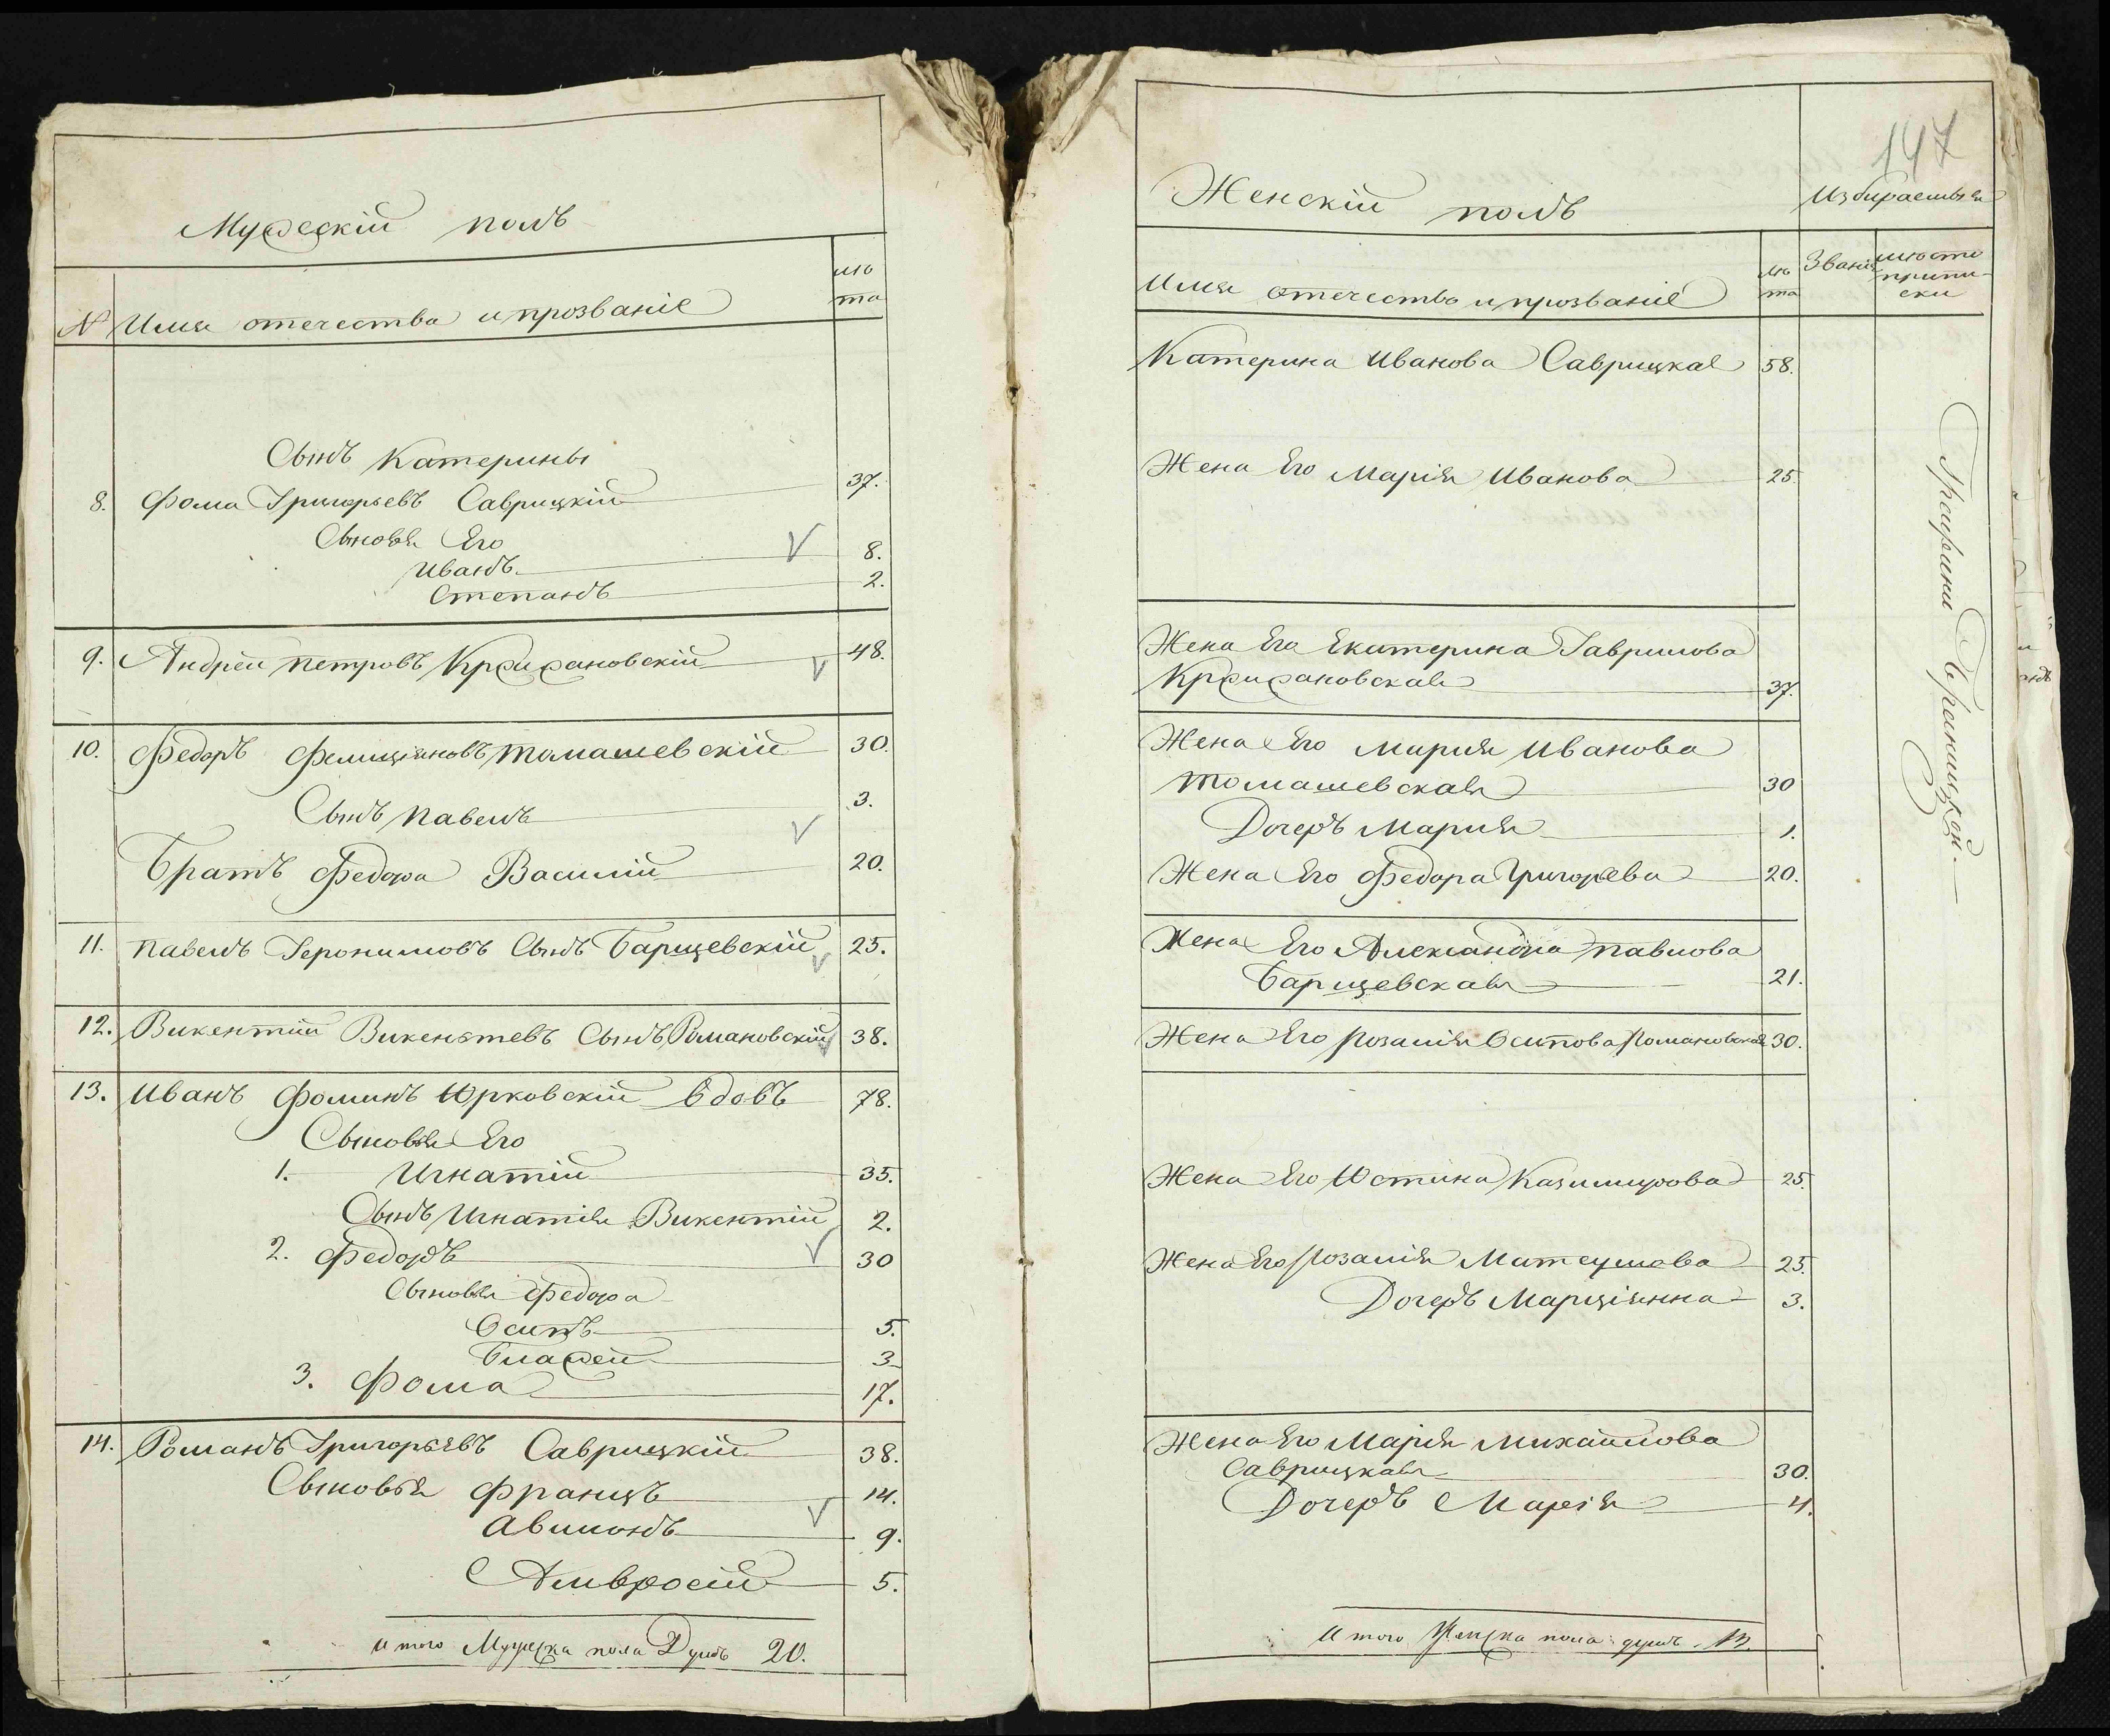 Мужескій полъ
№ Имя отечества и прозваніе
лѣ
та
Сынъ Катерины
8. Фома Григорьевъ Саврицкій 37.
Сыновья Его
Иванъ 8.
Степанъ 2.
9. Андрей Петровъ Кржижановскій 48.
10. Федоръ Фелиціяновъ Томашевскій 30.
Сынъ Павелъ 3.
Братъ Федора Василій 20.
11. Павелъ Іеронимовъ Сынъ Барщевскій 25.
12. Викентій Викентьевъ Сынъ Романовскій 38.
13. Иванъ Фоминъ Юрковскій вдовъ 78.
Сыновья Его
1. Игнатій 35.
Сынъ Игнатія Викентій 2.
2. Федоръ 30
Сыновья Федора
Осипъ 5.
Блажей 3
3. Фома 17.
14. Романъ Григорьевъ Саврицкій 38.
Сыновья Францъ 14.
Авимонъ 9.
Амвросій 5.
Итого Мужеска пола Душъ 20.
147
Женскій полъ
Избирается
Имя отечество и прозваніе
лѣ
та
Званіе
мѣсто
припи-
ски
Катерина Иванова Саврицкая 58.
Жена Его Марія Иванова 25.
Жена Его Екатерина Гаврилова
Кржижановская 37.
Жена Его Марія Иванова
Томашевская 30
Дочерь Марія 1.
Жена Его Федора Григорьева 20.
Жена Его Александра Павлова
Барщевская 21.
Жена Его Розалія Осипова Романовская 30.
Жена Его Юстина Казимирова 25.
Жена Его Розалія Матеушова 25.
Дочерь Марціянна 3.
Жена Его Марія Михайлова
Саврицкая 30.
Дочерь Марія 4.
Итого Женска пола душъ 13.
Графини Браницкой